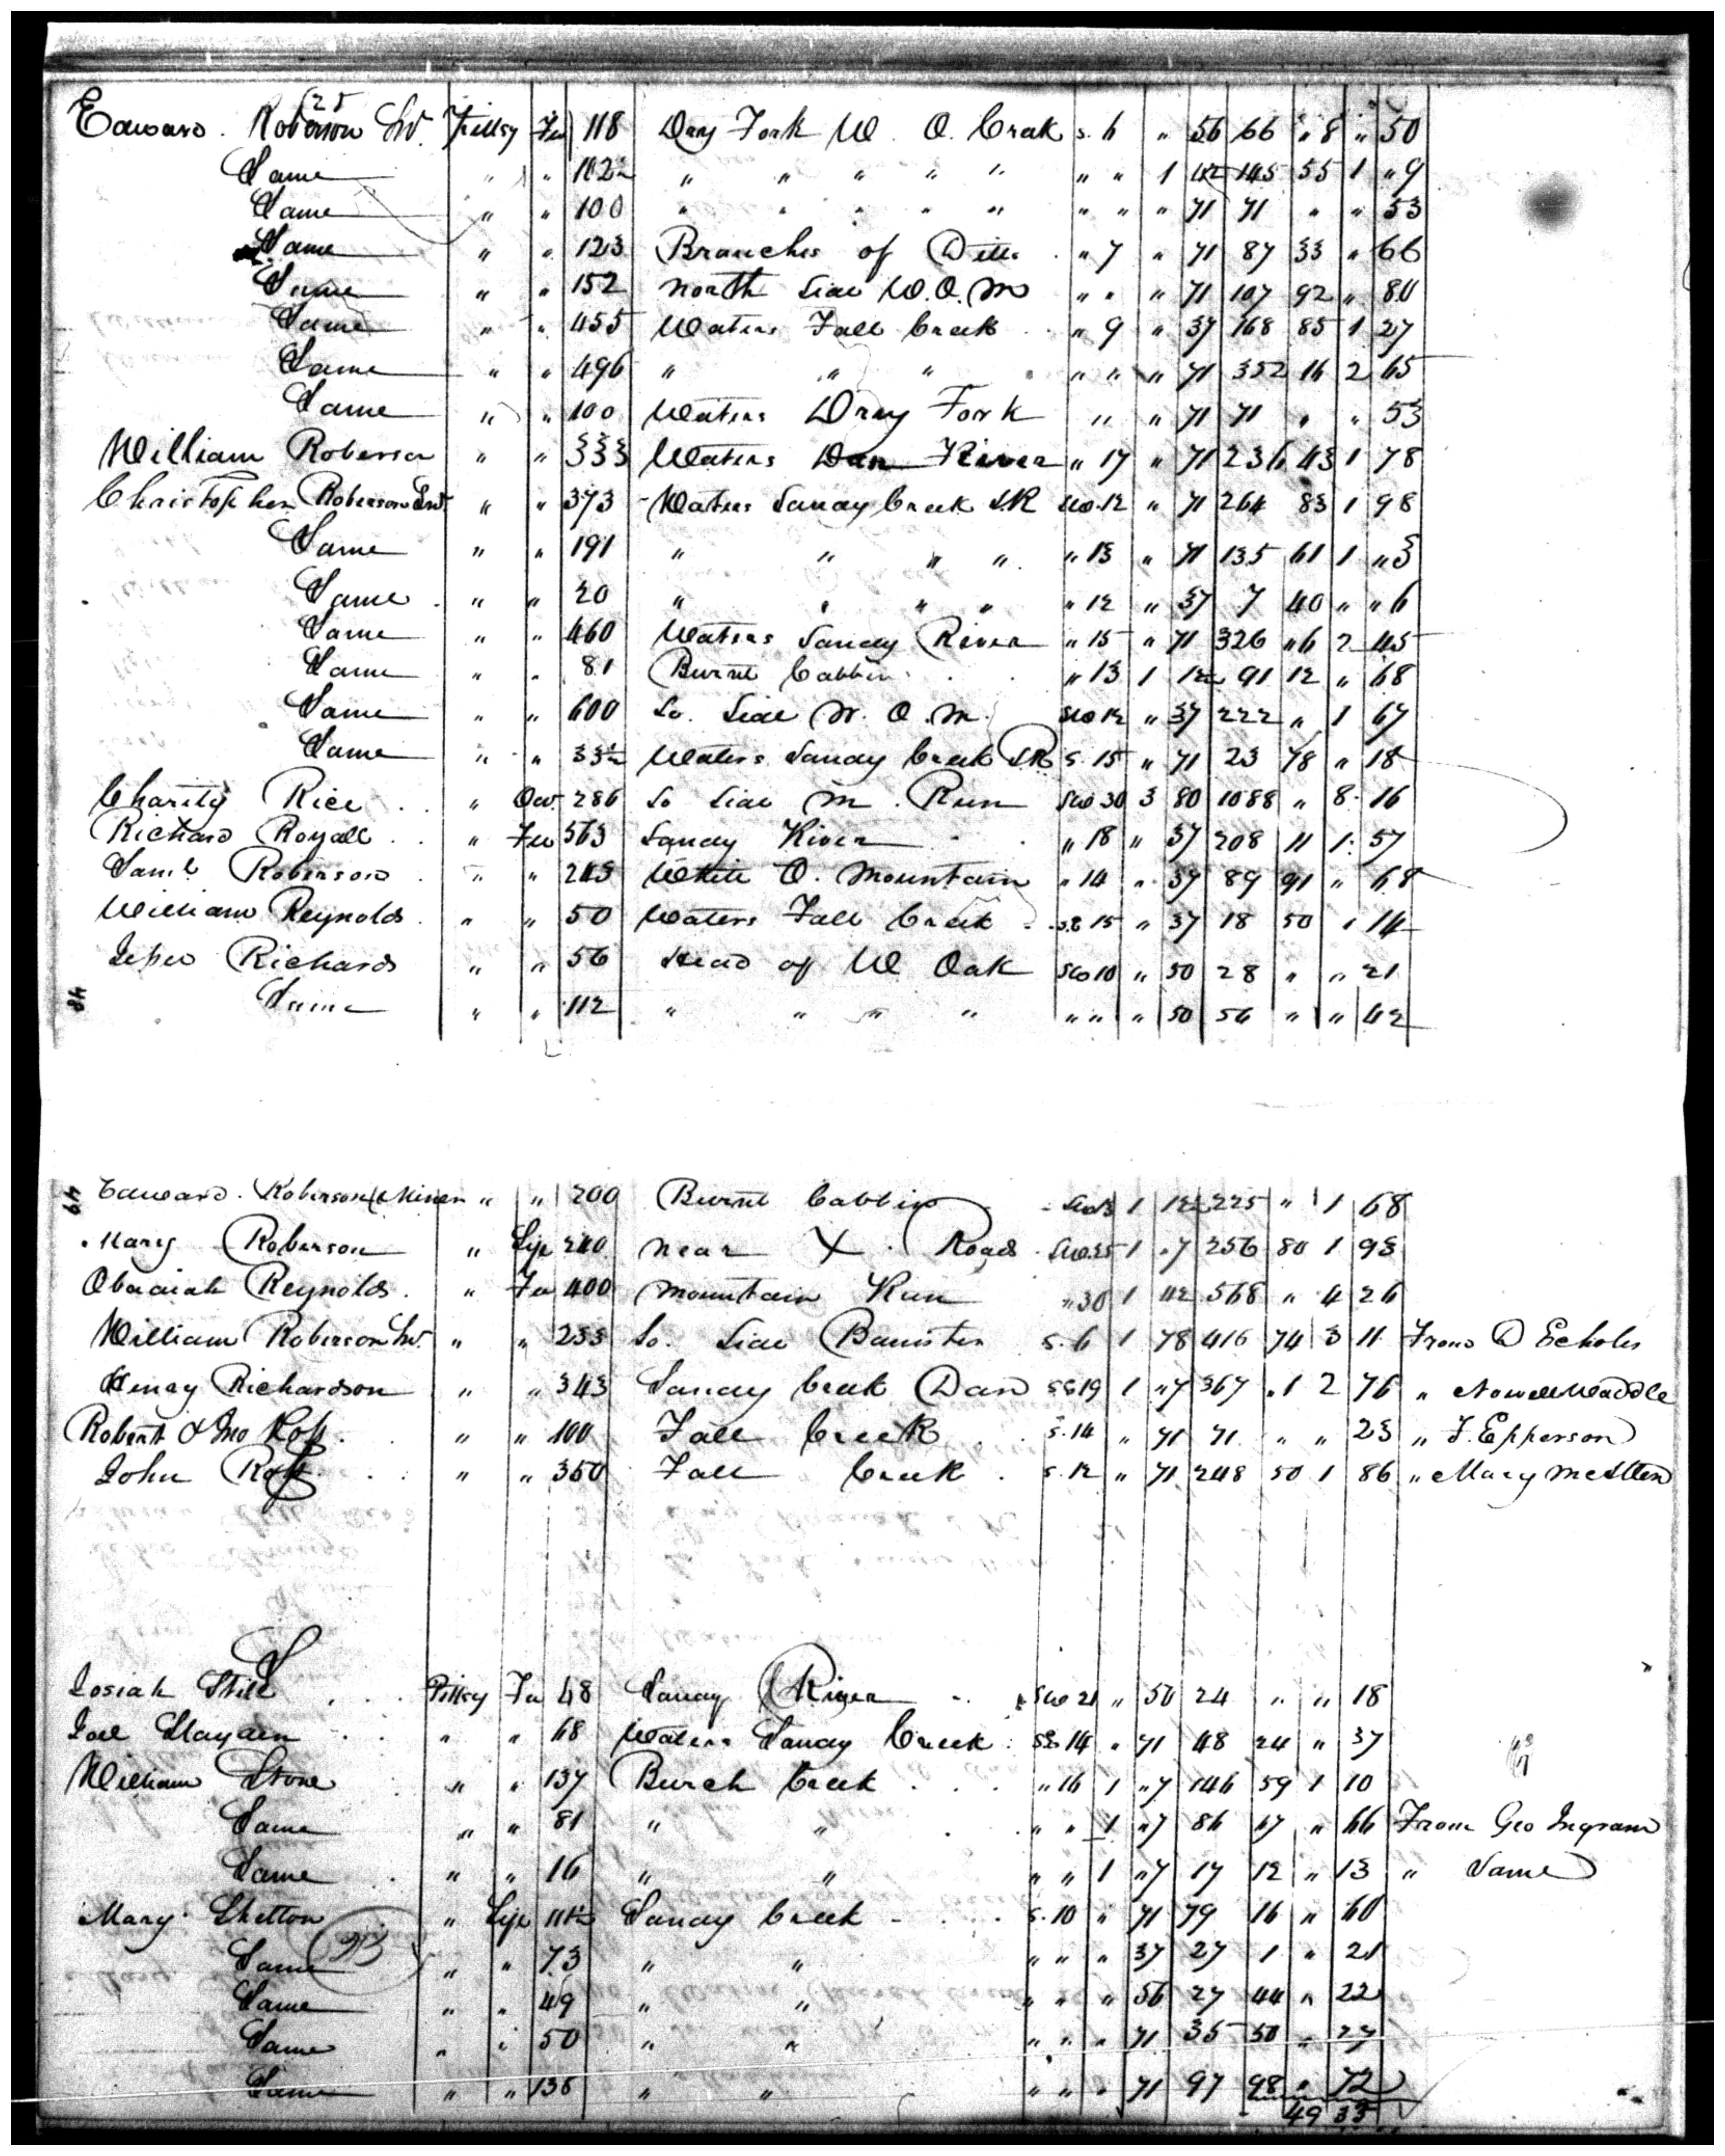 25
Edward. Roberson Snr. Pittsy Fee 118 Dray Fork W. O. Creak s. 6 " 56 66 " 8 " 50
Same " " 102½ " " " " " " " 1 42 145 55 1 " 9
Same " " 100 " " " " " " " " 71 71 " " 53
Same " " 123 Branches of Ditto " 7 " 71 87 33 " 66
Same " " 152 North Side W. O. M " " " 71 107 92 " 80
Same " " 455 Waters Fall Creek " 9 " 37 168 85 1 27
Same " " 496 " " " " " " 71 352 16 2 65
Same " " 100 Waters Dray Fork " " 71 71 " " 53
William Roberson " " 333 Waters Dan River " 17 " 71 236 43 1 78
Christopher Roberson Snr " " 373 Waters Sandy Creek S.R SW. 12 " 71 264 83 1 98
Same " " 191 " " " " " 13 " 71 135 61 1 " 3
Same " " 20 " " " " " 12 " 37 7 40 " " 6
Same " " 460 Waters Sandy River " 15 " 71 326 " 6 2 45
Same " " 81 Burnt Cabbin " 13 1 12½ 91 12 " 68
Same " " 600 So. Side W. O. M. SW 12 " 37 222 " 1 67
Same " " 33½ Waters Sandy Creek S.R S. 15 " 71 23 78 " 18
Charity Rice " Dw. 286 So Side M. Run SW 30 3 80 1088 " 8. 16
Richard Royall " Fee 563 Sandy River " 18 " 37 208 11 1. 57
Saml Robinson " " 243 White O. Mountain " 14 " 37 89 91 " 68
William Reynolds " " 50 Waters Fall Creek SE 15 " 37 18 50 " 14
Richards " " 56 Head of W Oak SW 10 " 50 28 " " 21
48
Same " " 112 " " " " " " " 50 56 " " 42
49
Edward. Roberson (Miner " " 200 Burnt Cabbin SW 13 1 12½ 225 " 1 68
Mary Roberson " Life 240 near X Roads SW 25 1 " 7 256 80 1 93
Obadiah Reynolds. " Fee 400 Mountain Run " 30 1 42 568 " 4 26
William Roberson Snr. " " 233 So. Side Banister S. 6 1 78 416 74 3 11 From D Echoles
Henry Richardson " " 343 Sandy Creek Dan SE 19 1 " 7 367 " 1 2 76 " Nowell Waddle
Robert & Jno Ross. " " 100 Fall Creek S. 14 " 71 71 " " 23 " F. Epperson
John Ross " " 350 Fall Creek S. 12 " 71 248 50 1 86 " Mary McAllen
S
Josiah Still Pittsy Fee 48 Sandy River SW 21 " 50 24 " " 18
Joel Slayden " " 68 Waters Sandy Creek SE 14 " 71 48 24 " 37
William Stone " " 137 Burch Creek " 16 1 " 7 146 59 1 10
Same " " 81 " " " " 1 " 7 86 67 " 66 From Geo Ingram
Same " " 16 " " " " 1 " 7 17 12 " 13 " Same
Mary Shelton " Life 111½ Sandy Creek S. 10 " 71 79 16 " 60
Same " " 73 " " " " " 37 27 1 " 21
Same " " 49 " " " " " 56 27 44 " 22
Same " " 50 " " " " " 71 35 50 " 27
Same " " 138 " " " " " 71 97 98 " 72
49 33